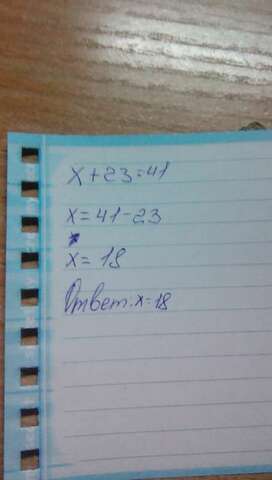 x+23=41
x=41-23
x=18
Ответ: x=18